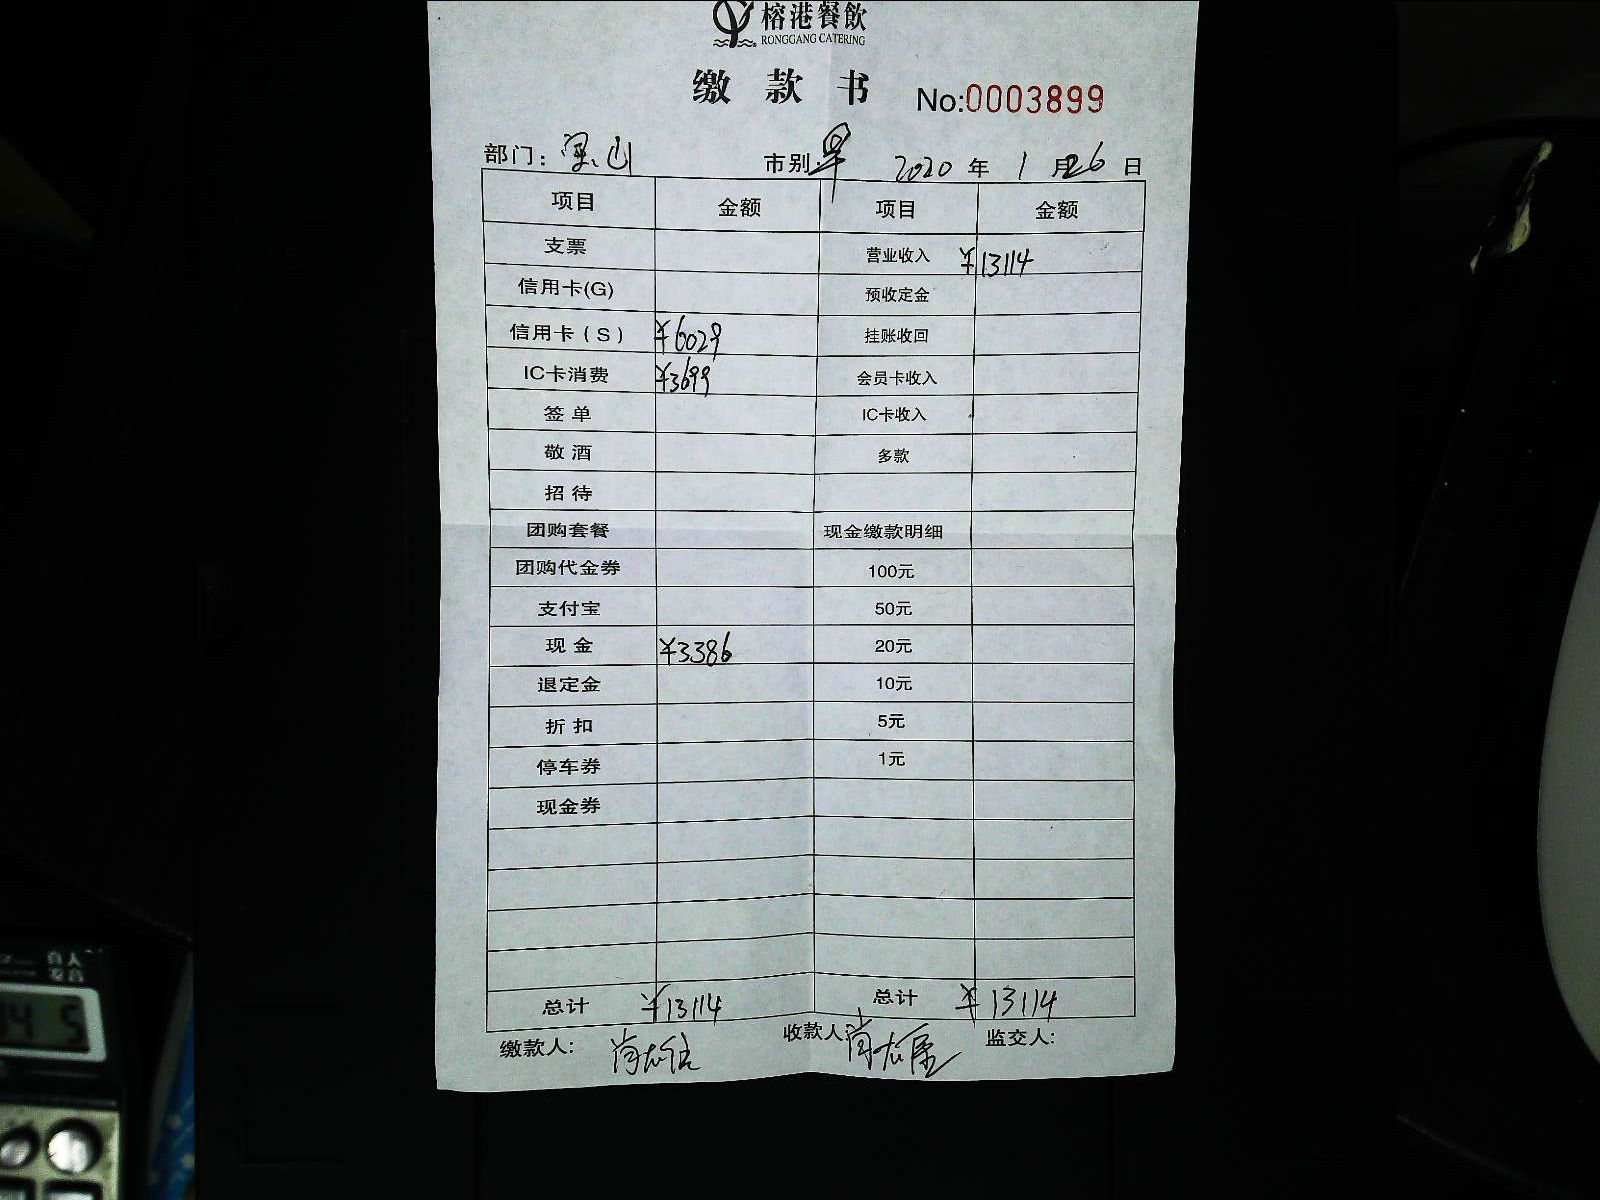 榕港餐飲
RONGGANG CATERING
缴款书 No:0003899
部门: 梁山 市别: 早 2020年1月26日
项目 金额 项目 金额
支票 营业收入 ¥13114
信用卡(G) 预收定金
信用卡(S) ¥6029 挂账收回
IC卡消费 ¥3699 会员卡收入
签单 IC卡收入
敬酒 多款
招待
团购套餐 现金缴款明细
团购代金券 100元
支付宝 50元
现金 ¥3386 20元
退定金 10元
折扣 5元
停车券 1元
现金券
总计 ¥13114 总计 ¥13114
缴款人: 收款人: 监交人:
真人
发音